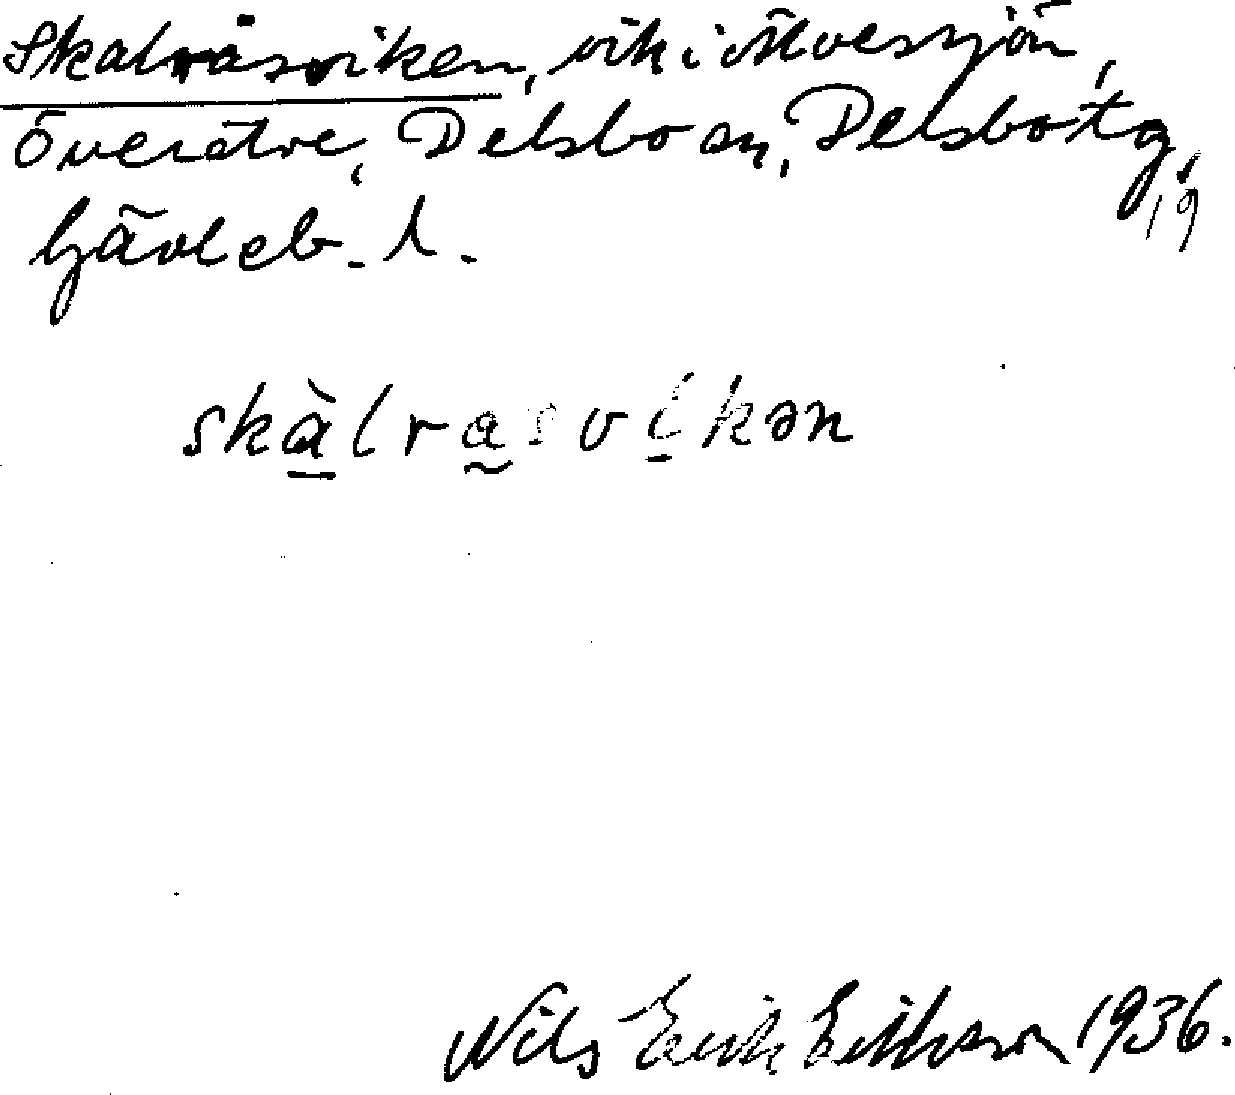 Skalråsviken, vik i Älvesjön,
Överälve, Delsbo sn, Delsbo tg,
19
Gävleb. l.
skàlrasvikən
Nils Erik Eriksson 1936.